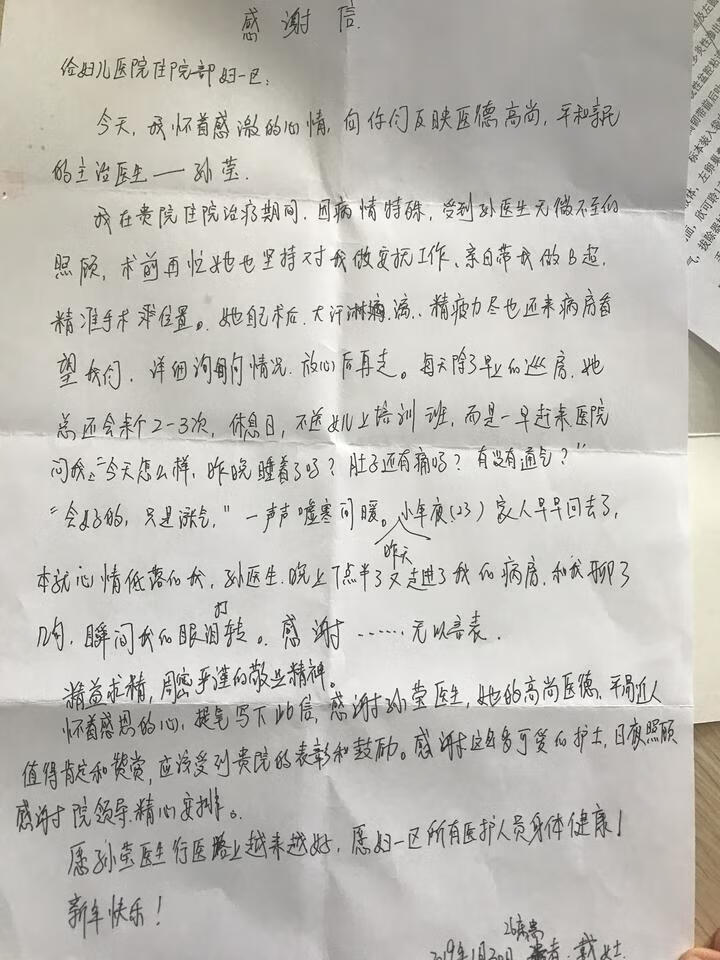 感谢信
给妇儿医院住院部妇一区：
今天，我怀着感激的心情，向你们反映医德高尚，平和亲民
的主治医生——孙莹。
我在贵院住院治疗期间，因病情特殊，受到孙医生无微不至的
照顾，术前再忙她也坚持对我做安抚工作、亲自带我做B超，
精准手术位置。她自己术后、大汗淋漓、精疲力尽也还来病房看
望我们，详细询问情况，放心后再走。每天除了早上的巡房，她
总还会来个2-3次，休息日，不送女儿上培训班，而是一早赶来医院
问我："今天怎么样，昨晚睡着了吗？肚子还有痛吗？有没有通气？"
"会好的，只是涨气，"一声声嘘寒问暖。小年夜(23)家人早早回去了，
昨天
本就心情低落的我，孙医生晚上7点半了又走进了我的病房，和我聊了
几句，瞬间我的眼泪打转。感谢……无以言表。
精益求精，周密严谨的敬业精神。
怀着感恩的心，提笔写下此信，感谢孙莹医生，她的高尚医德、平易近人
值得肯定和赞赏，应该受到贵院的表彰和鼓励。感谢这些可爱的护士，日夜照顾
感谢院领导精心安排。
愿孙莹医生行医路上越来越好，愿妇一区所有医护人员身体健康！
新年快乐！
26床患
2019年1月30日 患者：戴女士